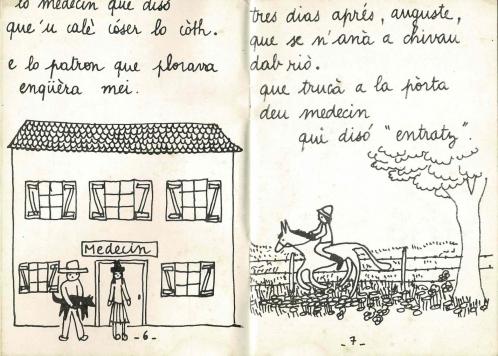 lo medecin que disó
que'u calè cóser lo còth.
e lo patron que plorava
enqüèra mei.
Medecin
-6-
tres dias aprés, auguste,
que se n'anà a chivau
dab riò.
que trucà a la pòrta
deu medecin
qui disó "entratz".
-7-